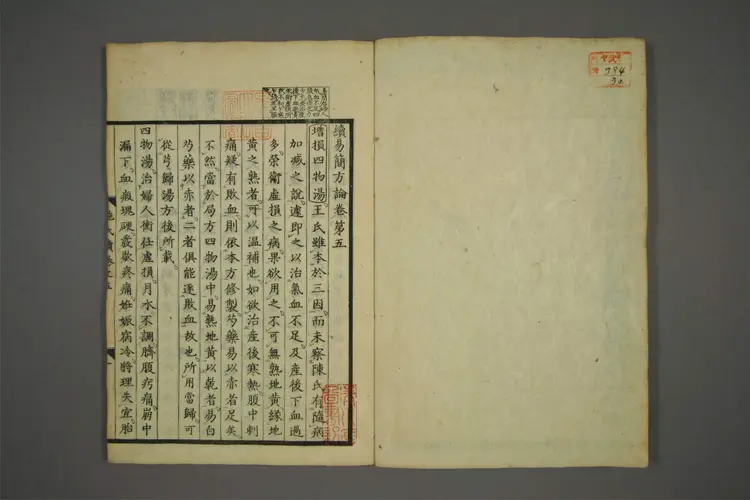 續易簡方論卷第五
增損四物湯王氏雖本於三因而未察陳氏有隨病
加減之說遽即之以治氣血不足及產後下血過
多榮衛虛損之病果欲用之不可無熟地黃緣地
黃之熟者可以温補也如欲治產後寒熱腹中刺
痛疑有敗血則依本方修製芍藥易以赤者足矣
不然當於局方四物湯中易熟地黃以乾者易白
芍藥以赤者二者俱能逐敗血故也所用當歸可
從芎歸湯方後所載
四物湯治婦人衝任虛損月水不調臍腹㽲痛崩中
漏下血瘕塊硬發歇疼痛妊娠宿冷將理失宜胎